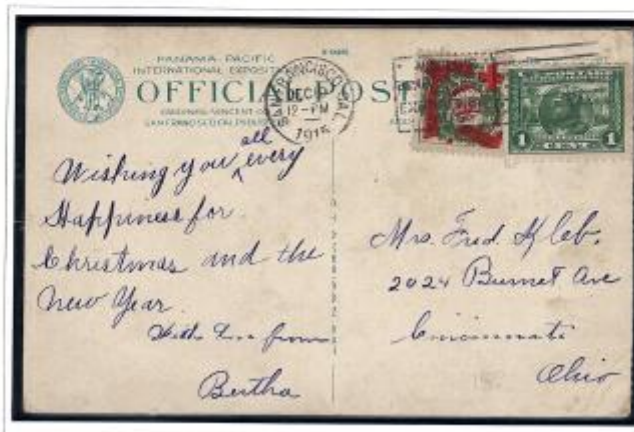 PANAMA-PACIFIC
INTERNATIONAL EXPOSITI
OFFICIAL POS
SAN FRANCISCO, CAL.
DEC
12-PM
1915
1 CENT 1
Wishing you all every
Happiness for
Christmas and the
New Year.
With Love from
Bertha
Mrs. Fred.
2024 Burnet Ave
Cincinnati
Ohio